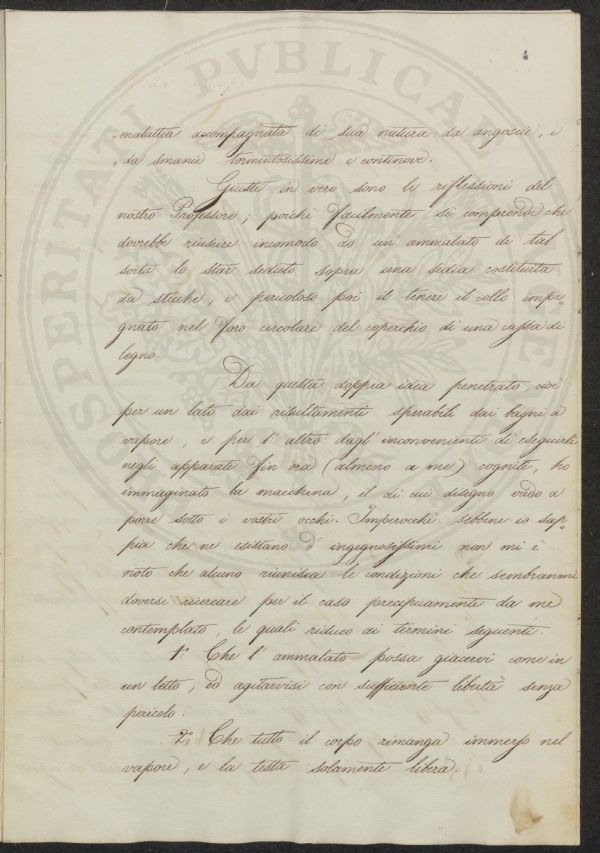 4
„malattia accompagnata di sua natura da angoscie, e
„da smanie tormentosissime e continove.
Giuste in vero sono le riflessioni del
nostro Professore; poichè facilmente si comprende che
dovrebbe riuscire incomodo ad un' ammalato di tal
sorta lo star seduto sopra una sedia costituita
da stecche, e pericoloso poi il tenere il collo impe-
gnato nel foro circolare del coperchio di una cassa di
legno.
Da questa doppia idea penetrato, cioè
per un lato dai risultamenti sperabili dai bagni a
vapore, e per l' altro dagl' inconvenienti di eseguirli
negli apparati fin ora (almeno a me) cogniti, ho
immaginato la macchina, il di cui disegno vado a
porre sotto i vostri occhi. Imperocchè sebbene io sap-
pia che ne esistano d' ingegnosissimi non mi è
noto che alcuno riunisca le condizioni che sembranmi
doversi ricercare per il caso precipuamente da me
contemplato, le quali riduco ai termini seguenti.
1.° Che l' ammalato possa giacervi come in
un letto, ed agitarvisi con sufficiente libertà senza
pericolo.
2.° Che tutto il corpo rimanga immerso nel
vapore, e la testa solamente libera.
PROSPERITATI PVBLICAE